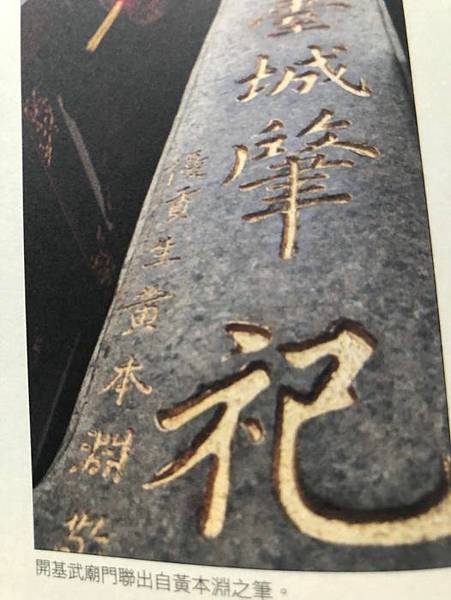 臺城肇祀
優貢生黃本淵敬
開基武廟門聯出自黃本淵之筆。